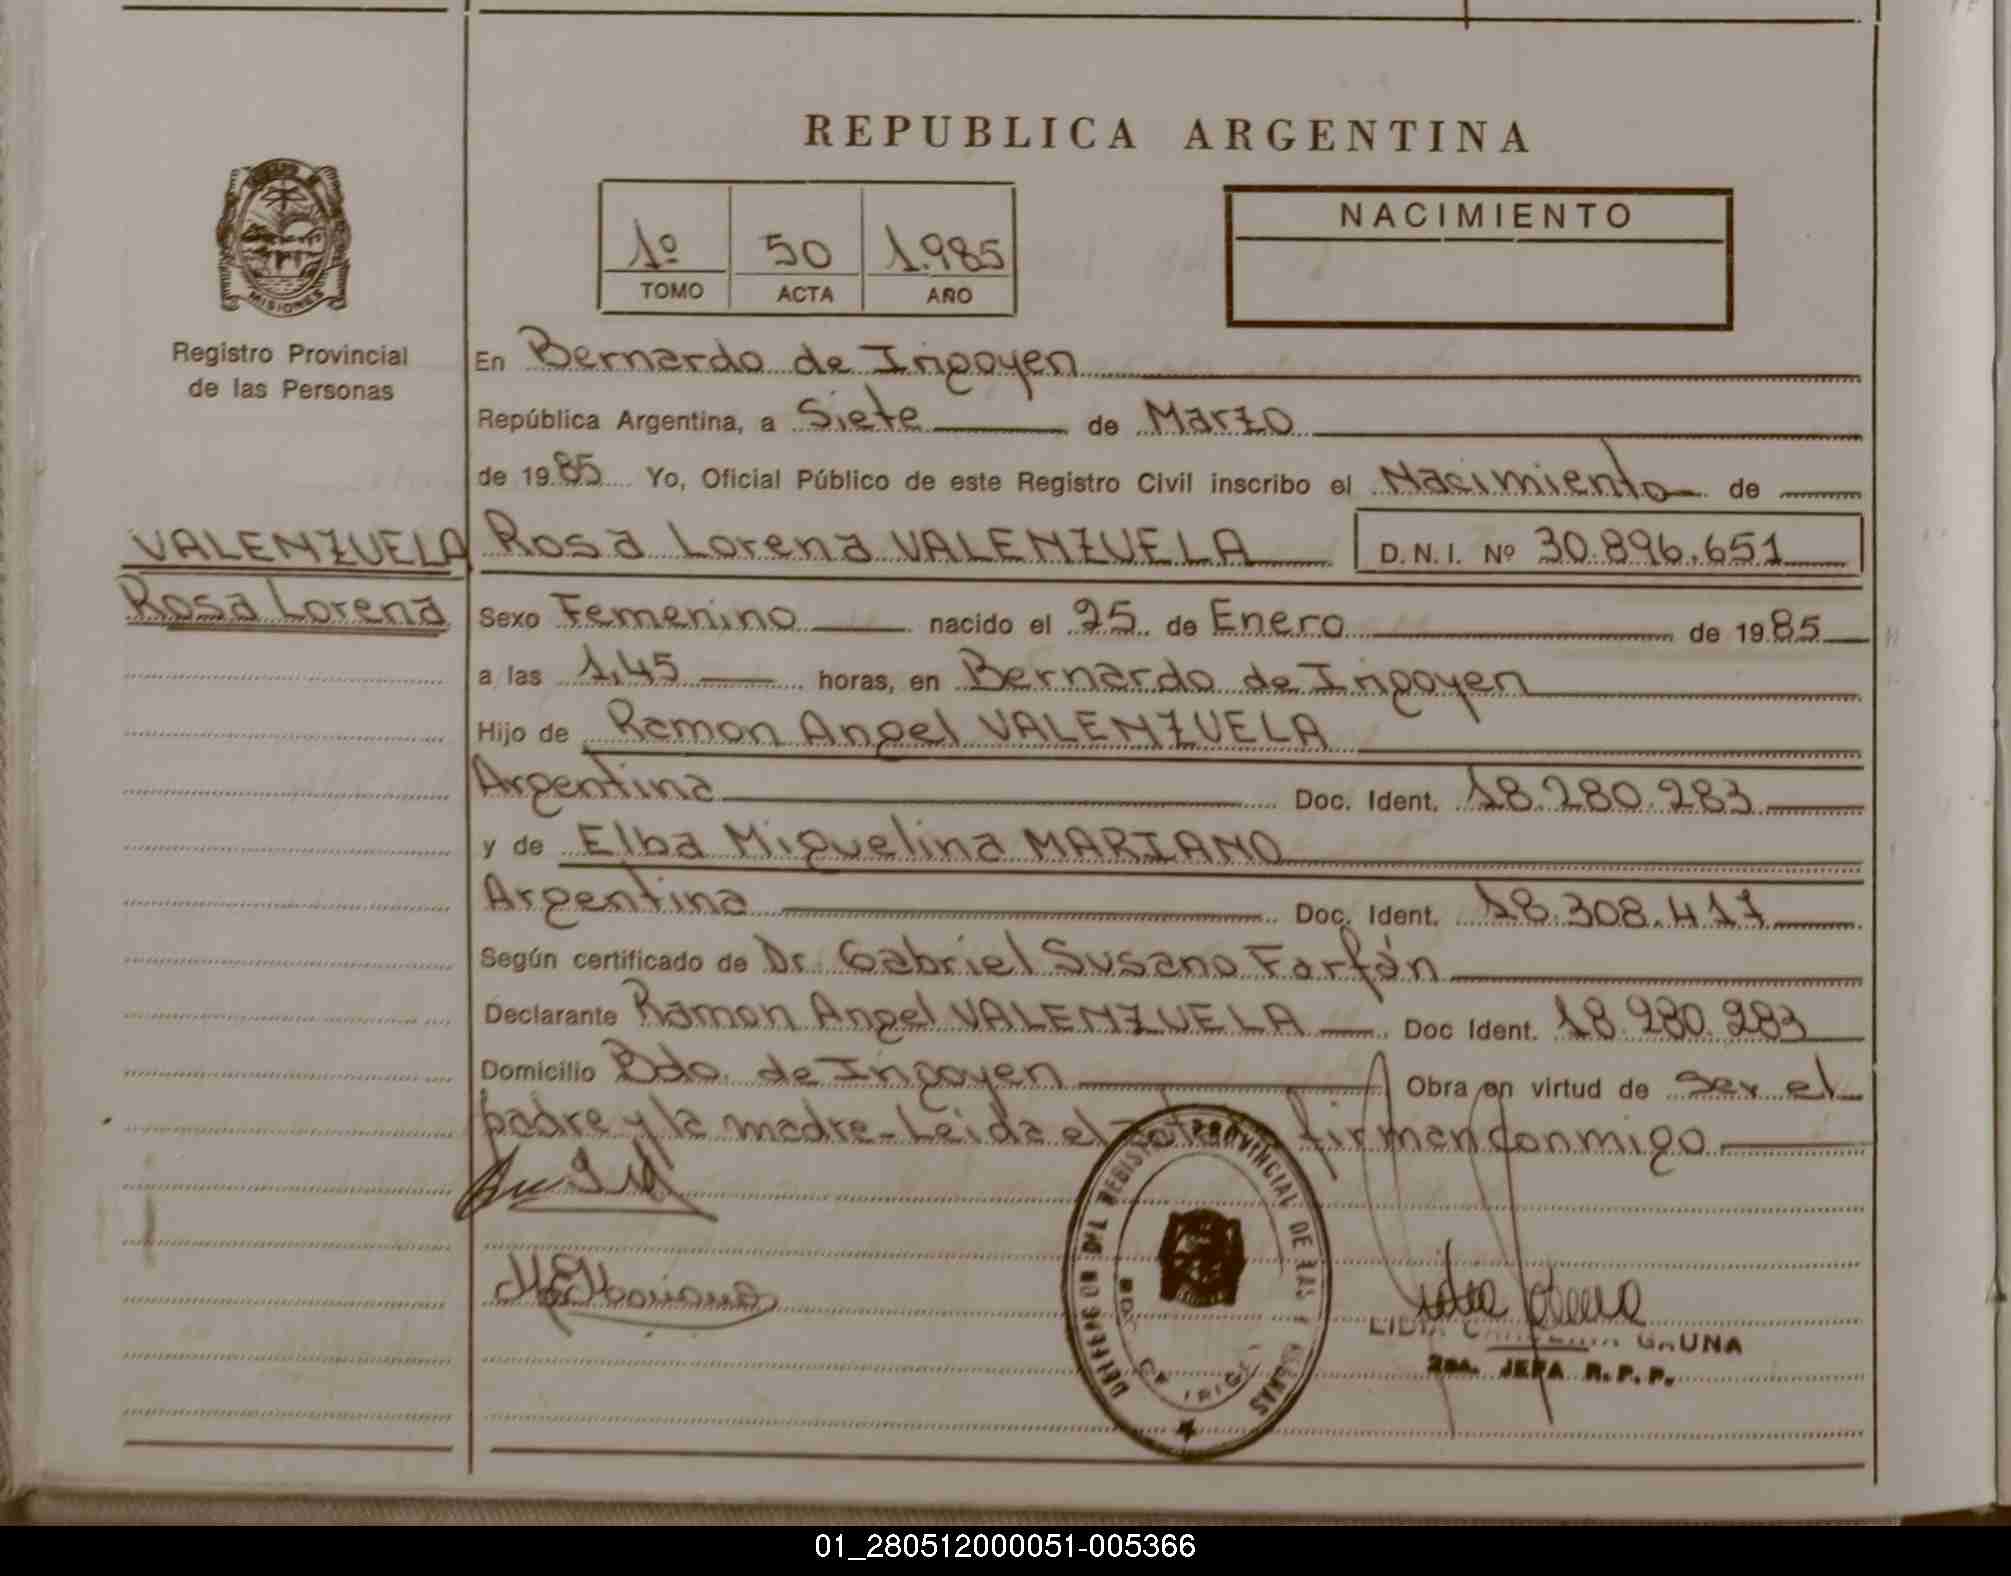 REPUBLICA ARGENTINA
1º 50 1.985
TOMO ACTA AÑO
NACIMIENTO
MISIONES
Registro Provincial
de las Personas
En Bernardo de Irigoyen
República Argentina, a Siete de Marzo
de 1985 Yo, Oficial Público de este Registro Civil inscribo el Nacimiento de
VALENZUELA
Rosa Lorena
Rosa Lorena VALENZUELA D.N.I. Nº 30.896.651
Sexo Femenino nacido el 25 de Enero de 1985
a las 1,45 horas, en Bernardo de Irigoyen
Hijo de Ramon Angel VALENZUELA
Argentina Doc. Ident. 18.280.283
y de Elba Miguelina MARIANO
Argentina Doc. Ident. 18.308.417
Según certificado de Dr. Gabriel Susano Farfán
Declarante Ramon Angel VALENZUELA Doc Ident. 18.280.283
Domicilio Bdo. de Irigoyen Obra en virtud de ser el
padre y la madre - Leida el acta firman conmigo
REGISTRO PROVINCIAL DE LAS
JEFA R.P.P.
01_280512000051-005366